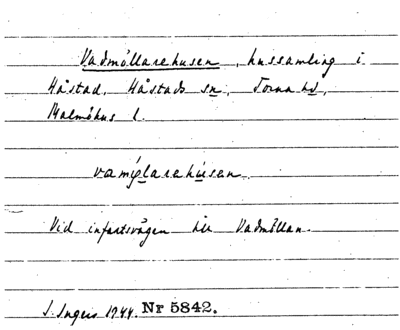 Vadmöllarehusen, hussamling i
Håstad, Håstads sn, Torna hd,
Malmöhus l.
vamø̜larehúsen
Vid infartsvägen till Vadmöllan.
I. Ingers 1944. Nr 5842.